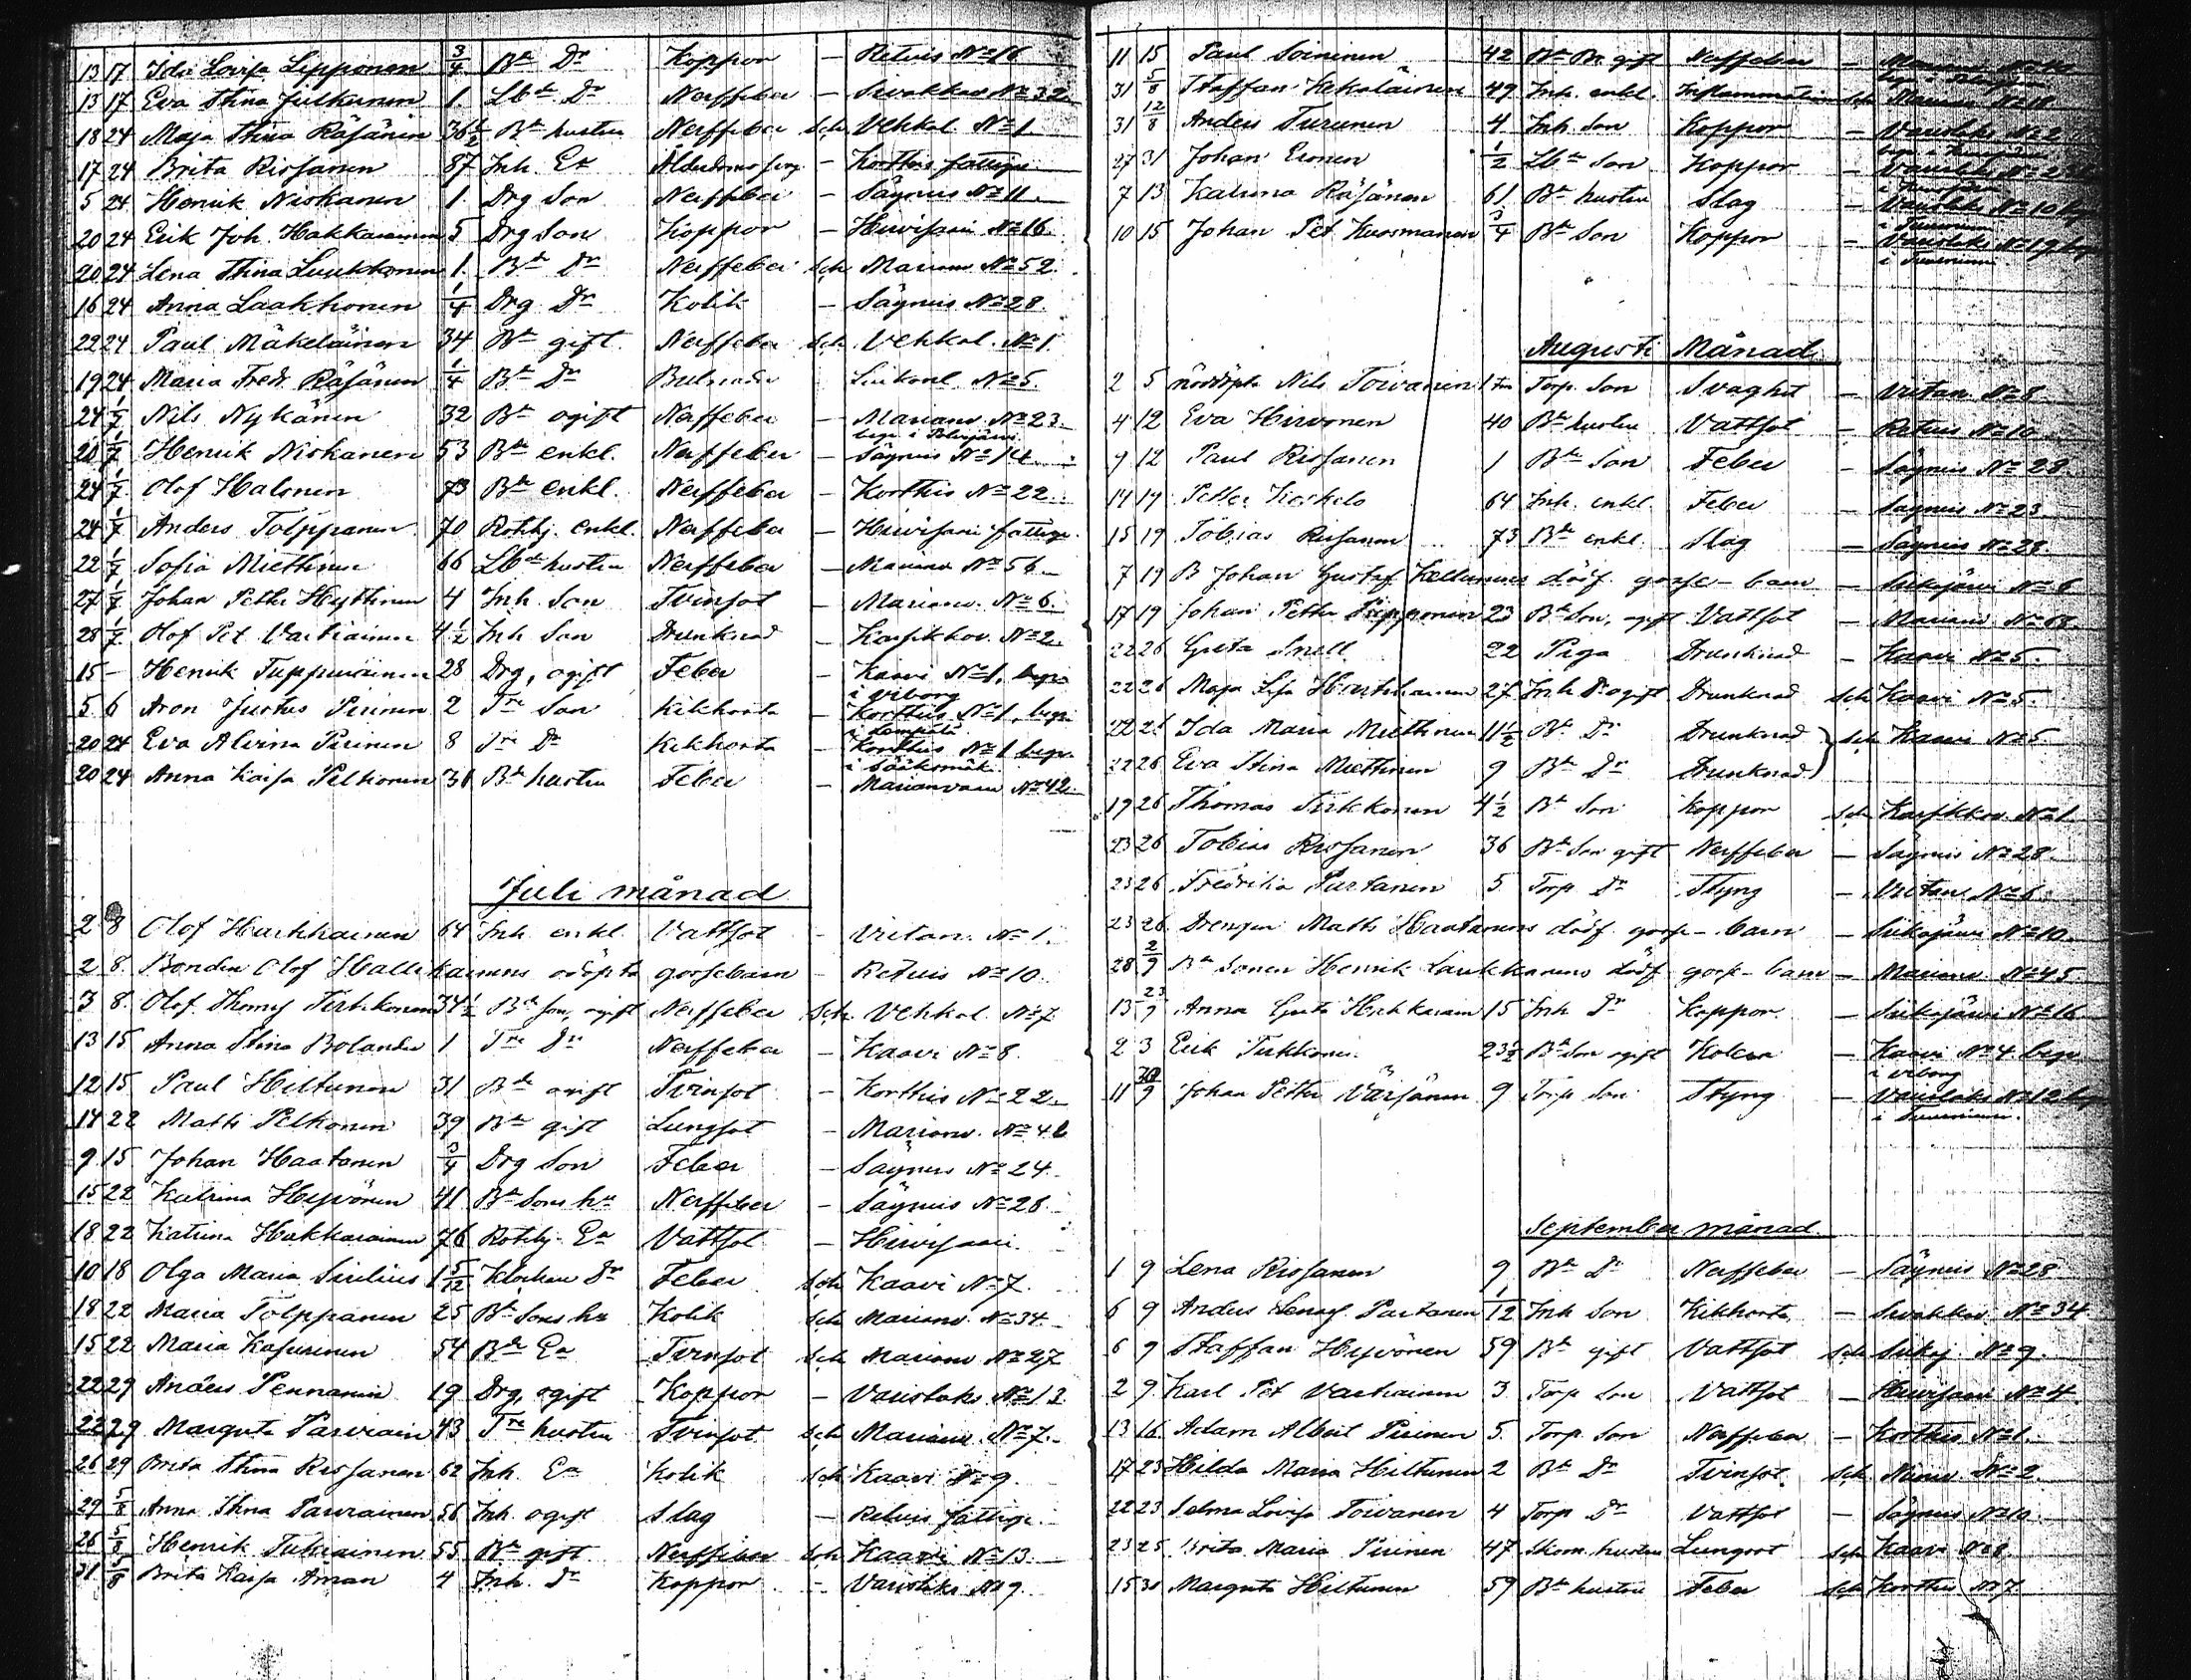 13 17 Ida Lovisa Lipponen 3/4 Bde Dr Koppor — Retuis No 16
13 17 Eva Stina Julkunen 1. Lbde Dr Nerffeber — Sivakkav No 32
18 24 Maja Stina Räsänen 36 1/2 Bde hustru Nerffeber Sch Vehkal. No 1
17 24 Brita Rissanen 87 Inh. Ea — Korthis fattige
5 24 Henrik Niskanen 1. Drg Son Nerffeber — Säyneis No 11.
20 24 Erik Joh. Hakkarainen 5 Drg Son Koppor — Hirvisaari No 16.
20 24 Lena Stina Luukkonen 1. Bde Dr Nerffeber Sch Marianv No 52.
16 24 Anna Laakkonen 1/4 Drg Dr Kolik — Säyneis No 28.
22 24 Paul Mäkeläinen 34 Bde gift Nerffeber Sch Vehkal. No 1.
19 24 Maria Fredr. Räsänen 1/4 Bde Dr No 5.
24 1/7 Nils Nykänen 32 Bde ogift Nerffeber — Marianv No 23
20 1/7 Henrik Niskanen 53 Bde enkl. Nerffeber — Säyneis No 14
24 1/7 Olof Halonen 73 Bde enkl. Nerffeber — Korthis No 22
24 1/7 Anders Tolppanen 70 Rothj. enkl. Nerffeber — Hirvisaari fattige
22 1/7 Sofia Miettinen 66 Lbde hustru Nerffeber — Marianv No 56
27 1/7 Johan Petter Hyttinen 4 Inh. Son Tvinsot — Marianv. No 6.
28 1/7 Olof Pet. Vartiainen 4 1/2 Inh Son Drunknad — Kasikkov. No 2.
15 — Henrik Tuppurainen 28 Drg, ogift Feber — Kaavi No 1, begr
i Viborg
5 6 Aron Justus Pirinen 2 Tre Son Kikhosta — Korthis No 1, begr.
20 24 Eva Alvina Pirinen 8 Tre Dr Kikhosta — Korthis No 1 begr.
i Sääksmäk.
20 24 Anna Kaisa Pelkonen 31 Bde hustru Feber — Marianvaara No 42.
Juli månad
2 8 Olof Hurskainen 64 Inh enkl. Vattsot — Viitan. No 1.
2 8. Bonden Olof Hallikainens odöpta gossebarn — Retuis No 10.
3 8. Olof Thomas Tirkkonen 34 1/2 Bde son, ogift Nerffeber Sch Vehkal. No 7.
13 15 Anna Stina Bolander 1 Tre Dr Nerffeber — Kaavi No 8.
12 15 Paul Hiltunen 31 Bde ogift Tvinsot — Korthis No 22
14 22 Matts Pelkonen 39 Bde gift Lungsot — Marianv. No 42
9 15 Johan Haatanen 3/4 Drg Son Feber — Säyneis No 24.
15 22 Katrina Hyvönen 41 Bde Sons hu Nerffeber — Säyneis No 28.
18 22 Katrina Hakkarainen 76 Rothj. Ea Vattsot — Hirvisaari.
10 18 Olga Maria Sirelius 1 5/12 Klockare Dr Feber Sch Kaavi No 7.
18 22 Maria Tolppanen 25 Bde Sons hu Kolik Sch Marianv. No 34.
15 22 Maria Kasurinen 54 Bde Ea Tvinsot Sch Marianv No 27
22 29 Anders Pennanen 19 Drg, ogift Koppor — Vaivolaks No 12
22 29 Margreta Parviain 43 Tre hustru Tvinsot Sch Marianv. No 7.
26 29 Brita Stina Rissanen 62 Inh. Ea Kolik Sch Kaavi No 9.
29 5/8 Anna Stina Parviainen 56 Inh. ogift Slag — Retuis fattige
26 5/8 Henrik Tukiainen 55 Bde gift Nerffeber Sch Kaavi No 13.
31 5/8 Brita Kaisa Åman 4 Inh. Dr Koppor — Vaivolaks No 9.
11 15 Paul Soininen 42 Bde gift Nerffeber
31 5/8 Staffan Kekäläinen 49 Inh. enkl. Inflammation Sch Marianv No 18
31 12/8 Anders Turunen 4 Inh Son Koppor — Vaivolaks No 2
27 31 Johan Eronen 1/2 Lbde Son Koppor — Vaivolaks
7 13 Katrina Räsänen 61 Bde hustru Slag — Vaivolaks No 10
10 15 Johan Pet Kuosmanen 3/4 Bde Son Koppor — Vaivolaks No 19
Augusti Månad.
2 5 nöddöpte Nils Toivanen Torp. Son Svaghet — Viitan No 8.
4 12 Eva Hirvonen 40 Bde hustru Vattsot — Retuis No 10
9 12 Paul Rissanen 1 Bde Son Feber — Säyneis No 28.
14 19 Petter Koskelo 64 Inh. enkl. Feber — Säyneis No 23
15 19 Tobias Rissanen 73 Bde enkl. Slag — Säyneis No 28.
7 19 B Johan Gustaf Kellunens dödf. gosse-barn — Siikajärvi No 6
17 19 Johan Petter Lipponen 23 Bde Son, ogift Vattsot — Marianv No 68.
22 26 Greta Snell 22 Piga Drunknad — Kaavi No 5.
22 26 Maja Lisa Hurskainen 27 Inh Dr ogift Drunknad Sch Kaavi No 5.
22 26 Ida Maria Miettinen 11 1/2 Bde Dr Drunknad Sch Kaavi No 5.
22 26 Eva Stina Miettinen 9 Bde Dr Drunknad
19 26 Thomas Tirkkonen 4 1/2 Bde Son Koppor Sch Kasikkov. No 1
23 26 Tobias Rissanen 36 Bde Son gift Nerffeber — Säyneis No 28.
23 26 Fredrika Partanen 5. Torp. Dr Styng — Viitan No 6.
23 26 Drengen Matts Haatanens dödf. gosse-barn — Siikajärvi No 10.
28 2/9 Bde Sonen Henrik Laukkanens dödf gosse-barn — Marianv. No 45
13 23/9 Anna Greta 15 Inh Dr Koppor — Siikajärvi No 16
2 3 Erik Tirkkonen 23 1/2 Bde Son ogift Kolera — Kaavi No 4 begr
i Viborg
11 30/9 Johan Petter Väisänen 9 Torp Son Styng — Vaivolaks No 12
September månad
1 9 Lena Rissanen 9 Bde Dr Nerffeber — Säyneis No 28
6 9 Anders Partanen 1/12 Inh Son Kikhosta — Sivakkav. No 34.
6 9 Staffan Hyvönen 59 Bde gift Vattsot Sch Siikaj No 9.
2 9. Karl Pet Vartiainen 3. Torp Son Vattsot — Hirvisaari No 4
13 16 Adam Albert Pirinen 5. Torp. Son Nerffeber — Korthis No 1.
17 23 Hilda Maria Hiltunen 2 Bde Dr Tvinsot Sch No 2.
22 23 Selma Lovisa Toivanen 4 Torp Dr Vattsot — Säyneis No 10.
23 25 Brita Maria Pirinen 47 Skom. hustru Lungsot Sch Kaavi No 8.
15 30 Margreta Hiltunen 59 Bde hustru Feber Sch Korthis No 7.